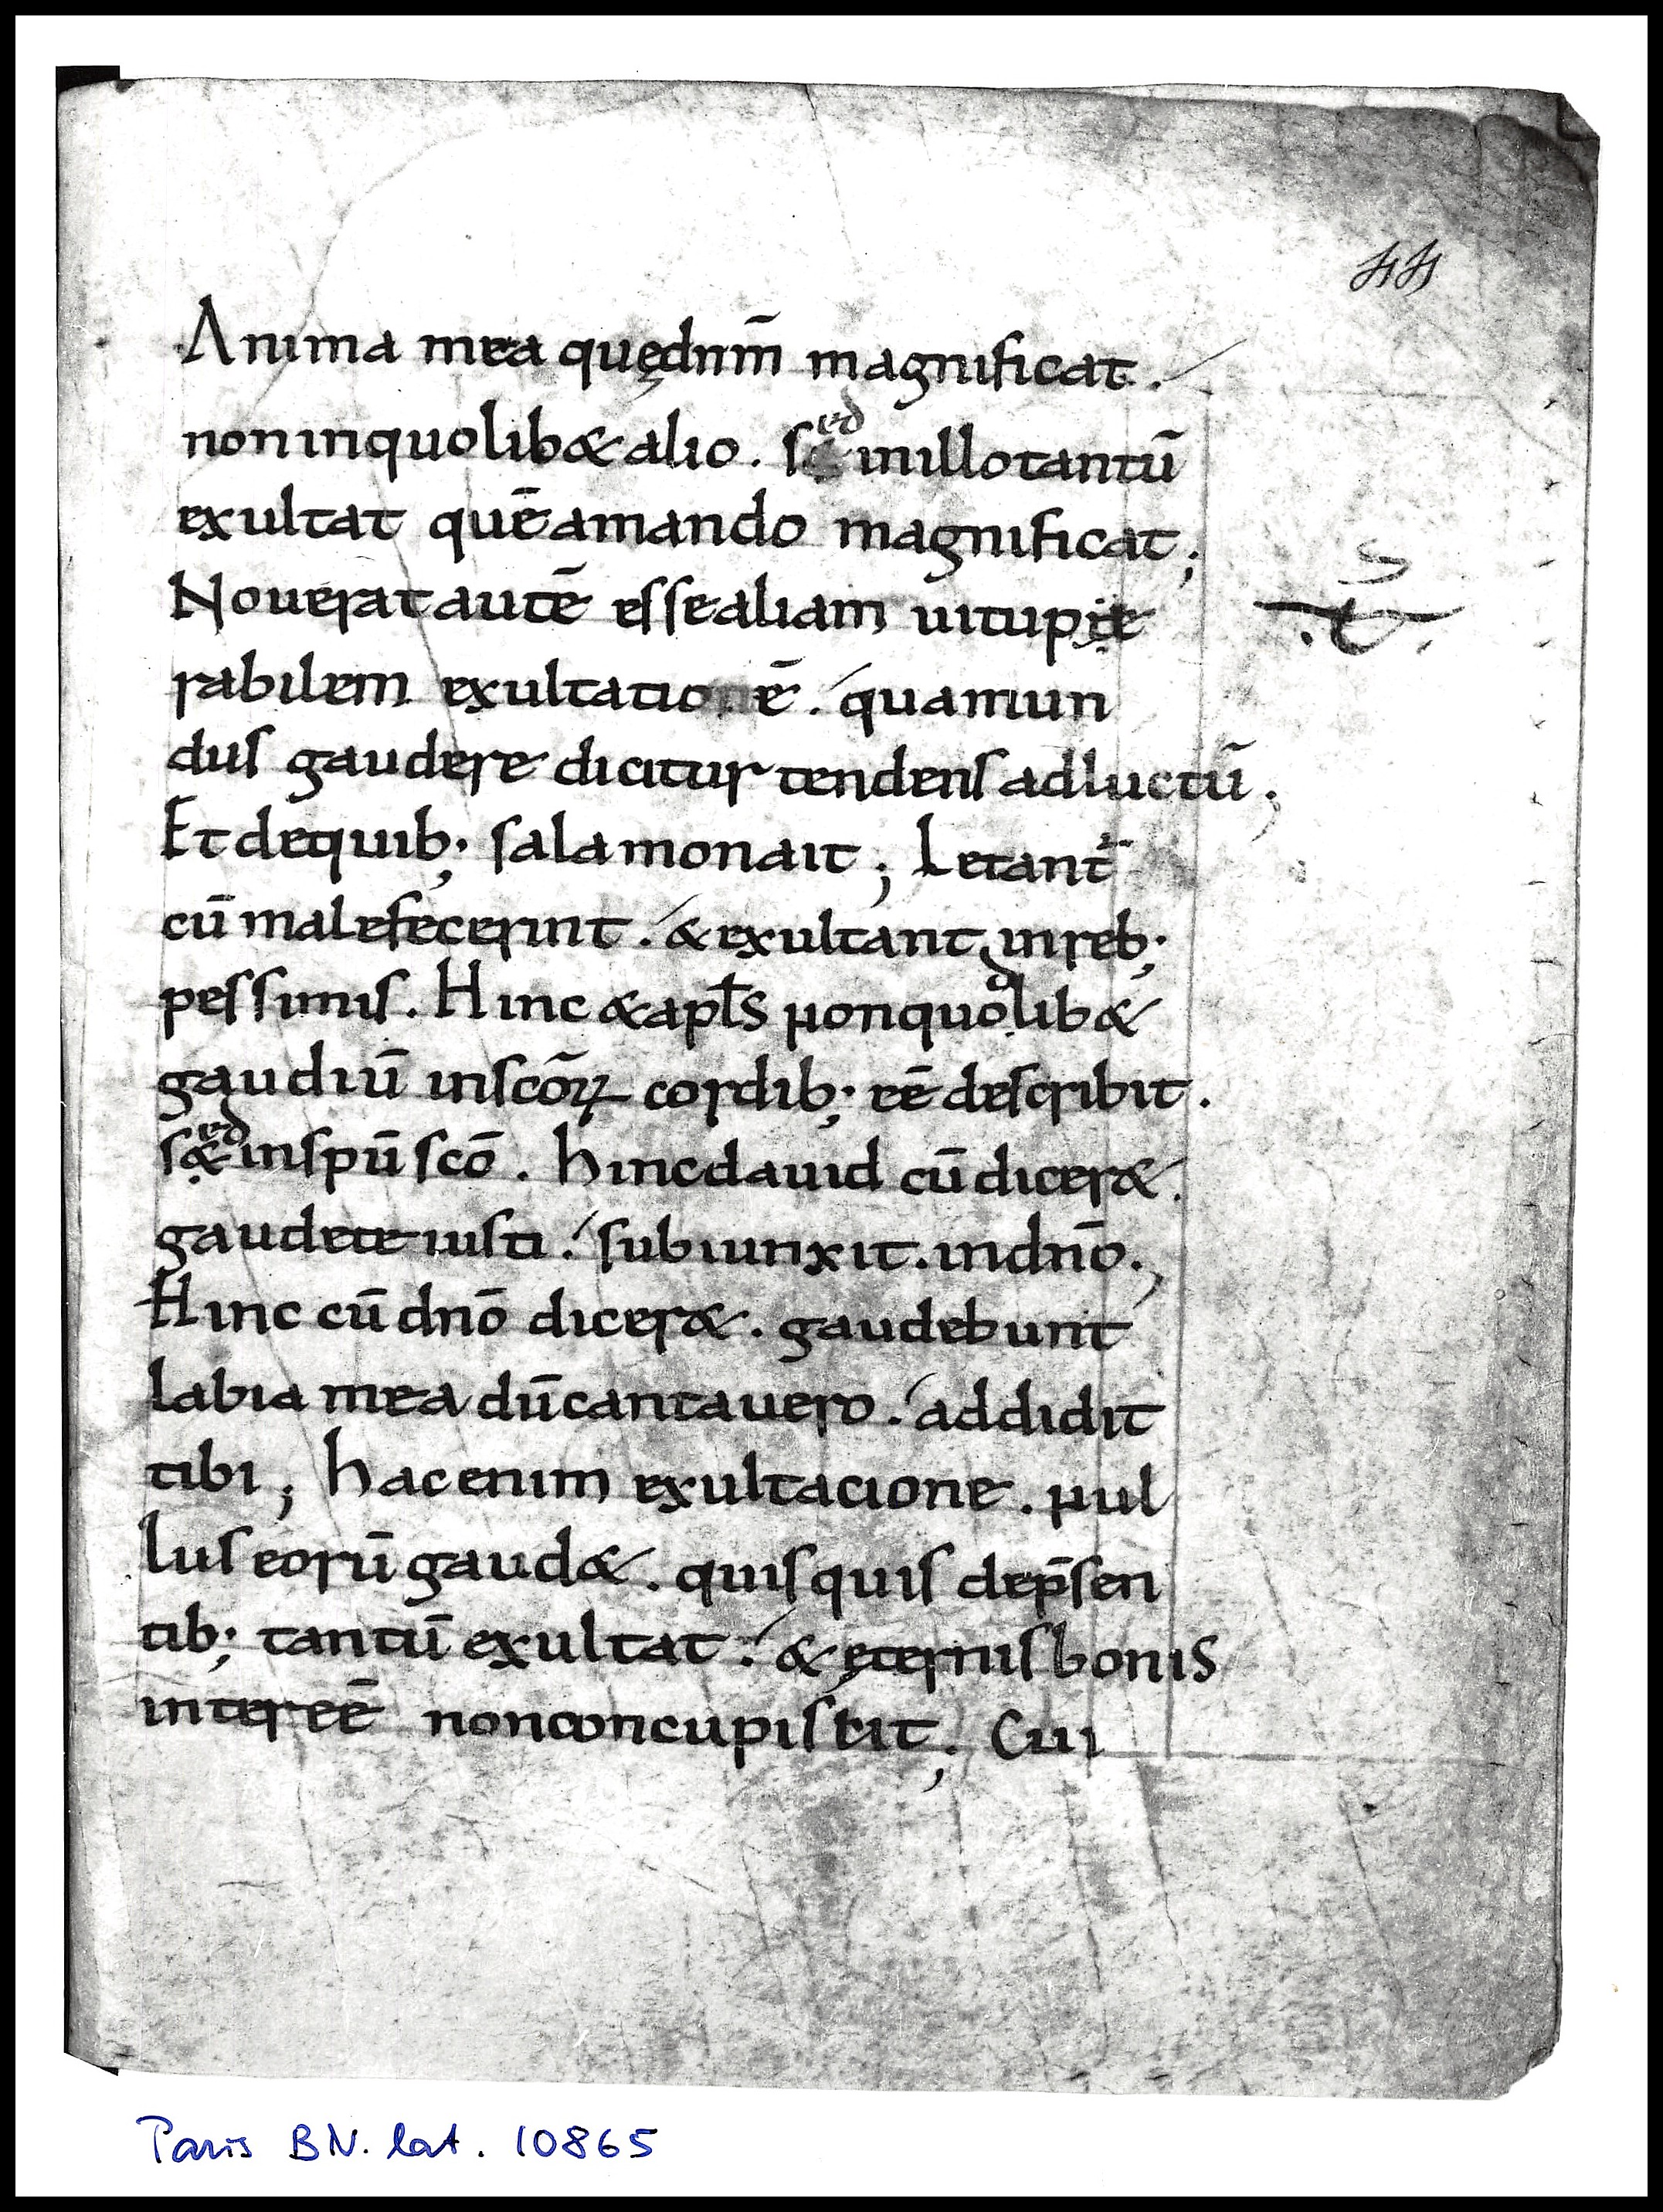 44
Anima mea quędnm̄ magnificat.
non inquolib& alio. sed inillotantū
exultat quē amando magnificat;
Nouerat autē esse aliam uitupe
rabilem exultationē. quamun
dus gaudere dicitur tendens adluctū;
Et dequib; salamon ait; Letant̄
cū malefecerint. & exultant inreb;
pessimis. Hinc & apl̄s nonquodlib&
gaudiū inscōꝝ cordib; eē describit.
sed inspū scō. hinc dauid cū dicer&.
gaudete iusti. subiunxit. indnō.,
Hinc cū dnō dicer&. gaudebunt
labia mea dū cantauero. addidit
tibi; hac enim exultacione. nul
lus eorū gaud&. quisquis dep̄sen
tib; tantū exultat. & ęternis bonis
intereē non concupiscit; Cui
Paris BN. lat. 10865